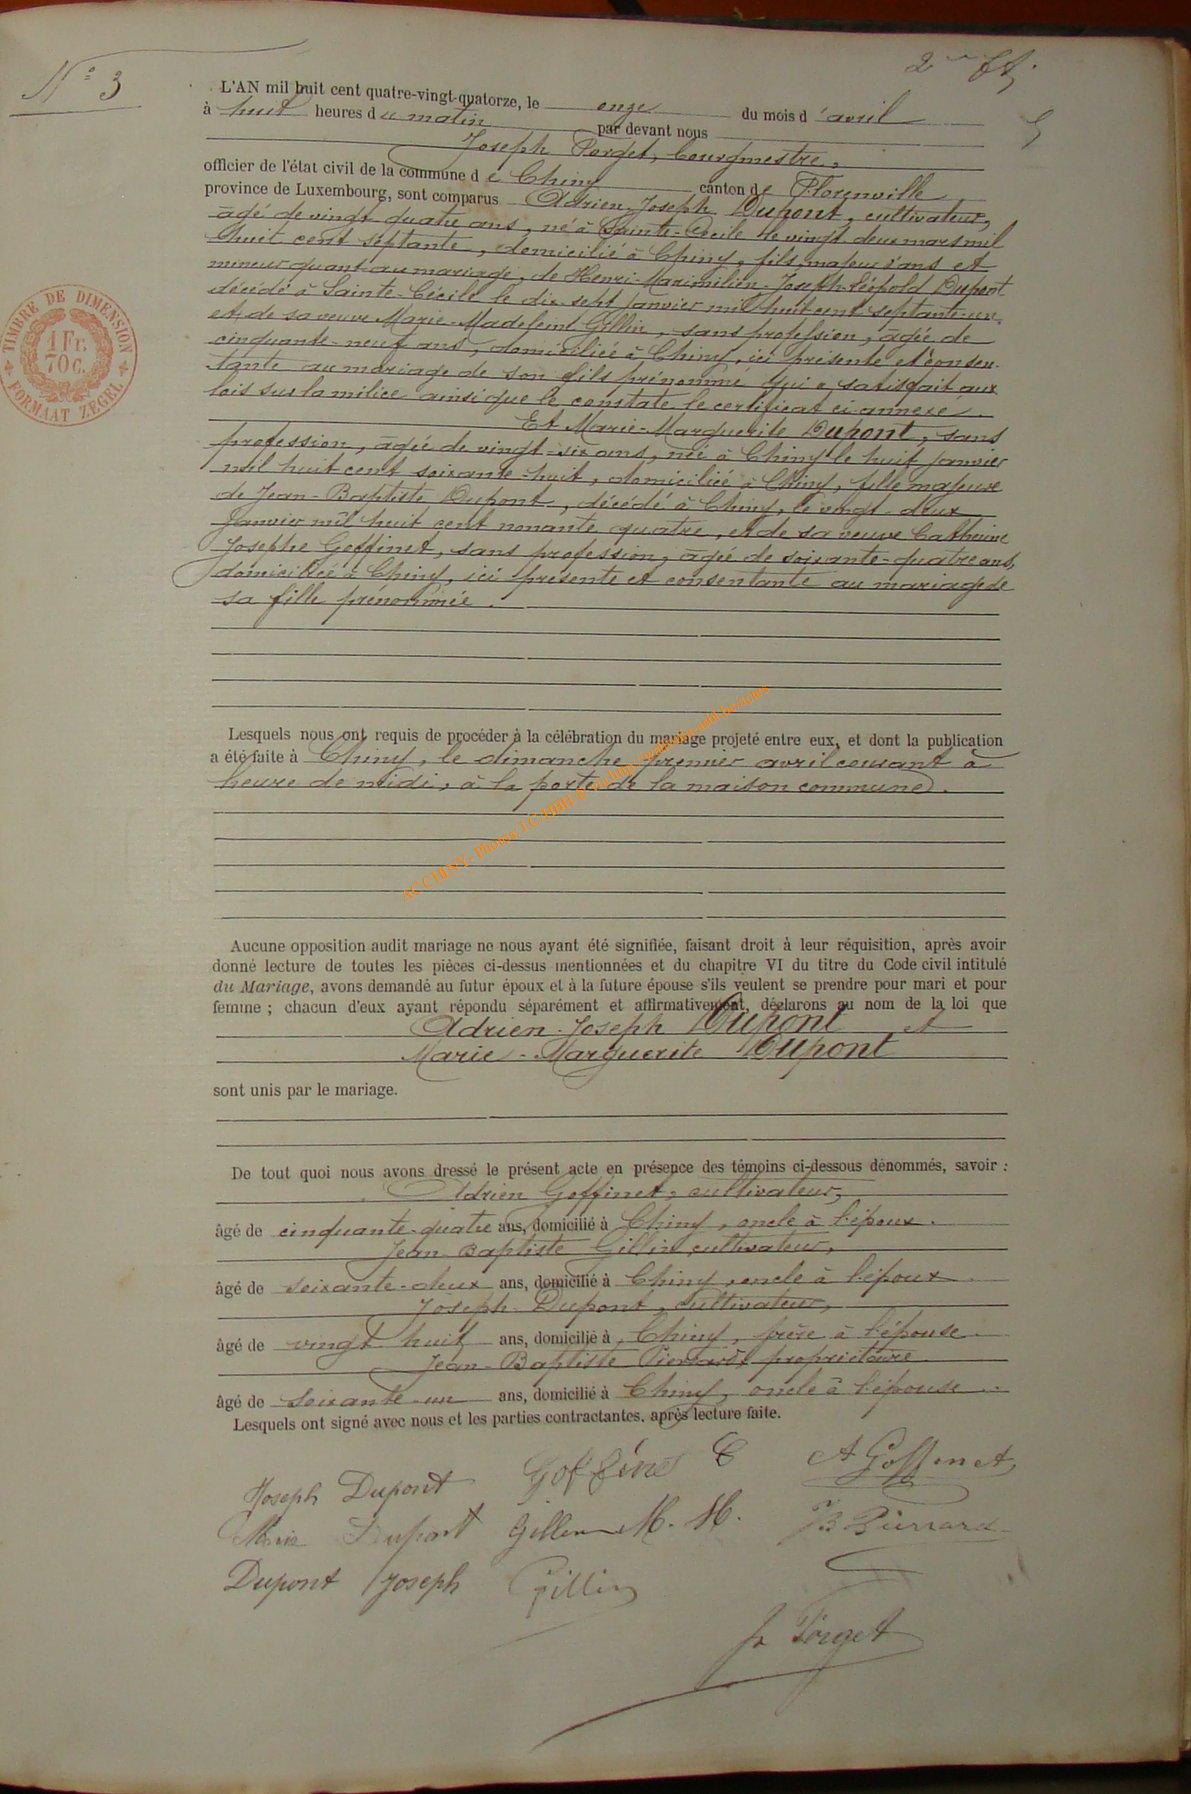 N° 3
L'AN mil huit cent quatre-vingt-quatorze, le onze du mois d'avril
à huit heures du matin par devant nous
Joseph Forget, bourgmestre,
officier de l'état civil de la commune de Chiny canton de Florenville
province de Luxembourg, sont comparus Adrien-Joseph Dupont, cultivateur,
âgé de vingt quatre ans, né à Sainte-Cécile le vingt deux mars mil
huit cent septante, domicilié à Chiny, fils majeur d'ans et
mineur quant au mariage, de Henri-Maximilien-Joseph-Léopold Dupont
décédé à Sainte-Cécile le dix sept janvier mil huit cent septante-un,
et de sa veuve Marie-Madeleine Gillin, sans profession, âgée de
cinquante-neuf ans, domiciliée à Chiny, ici présente et consen-
tante au mariage de son fils prénommé qui a satisfait aux
lois sur la milice ainsi que le constate le certificat ci annexé.
Et Marie-Marguerite Dupont, sans
profession, âgée de vingt-six ans, née à Chiny le huit janvier
mil huit cent soixante-huit, domiciliée à Chiny, fille majeure
de Jean-Baptiste Dupont, décédé à Chiny, le vingt-deux
janvier mil huit cent nonante quatre, et de sa veuve Catherine
Josephe Goffinet, sans profession, âgée de soixante-quatre ans,
domiciliée à Chiny, ici présente et consentante au mariage de
sa fille prénommée.
TIMBRE DE DIMENSION
1 Fr.
70 C.
FORMAAT ZEGEL
Lesquels nous ont requis de procéder à la célébration du mariage projeté entre eux, et dont la publication
a été faite à Chiny, le dimanche premier avril courant à
heure de midi, à la porte de la maison commune.
AC CHINY - Photos
Aucune opposition audit mariage ne nous ayant été signifiée, faisant droit à leur réquisition, après avoir
donné lecture de toutes les pièces ci-dessus mentionnées et du chapitre VI du titre du Code civil intitulé
du Mariage, avons demandé au futur époux et à la future épouse s'ils veulent se prendre pour mari et pour
femme ; chacun d'eux ayant répondu séparément et affirmativement, déclarons au nom de la loi que
Adrien-Joseph Dupont et
Marie-Marguerite Dupont
sont unis par le mariage.
De tout quoi nous avons dressé le présent acte en présence des témoins ci-dessous dénommés, savoir :
Adrien Goffinet, cultivateur,
âgé de cinquante-quatre ans, domicilié à Chiny, oncle à l'époux.
Jean-Baptiste Gillin cultivateur,
âgé de soixante-deux ans, domicilié à Chiny, oncle à l'époux
Joseph Dupont, cultivateur,
âgé de vingt huit ans, domicilié à Chiny, frère à l'épouse
Jean-Baptiste Pierrard, propriétaire
âgé de soixante-un ans, domicilié à Chiny, oncle à l'épouse
Lesquels ont signé avec nous et les parties contractantes, après lecture faite.
Joseph Dupont Goffinet C A Goffinet
Marie Dupont Gillin M. M. JB Pierrard
Dupont Joseph Gillin
J. Forget